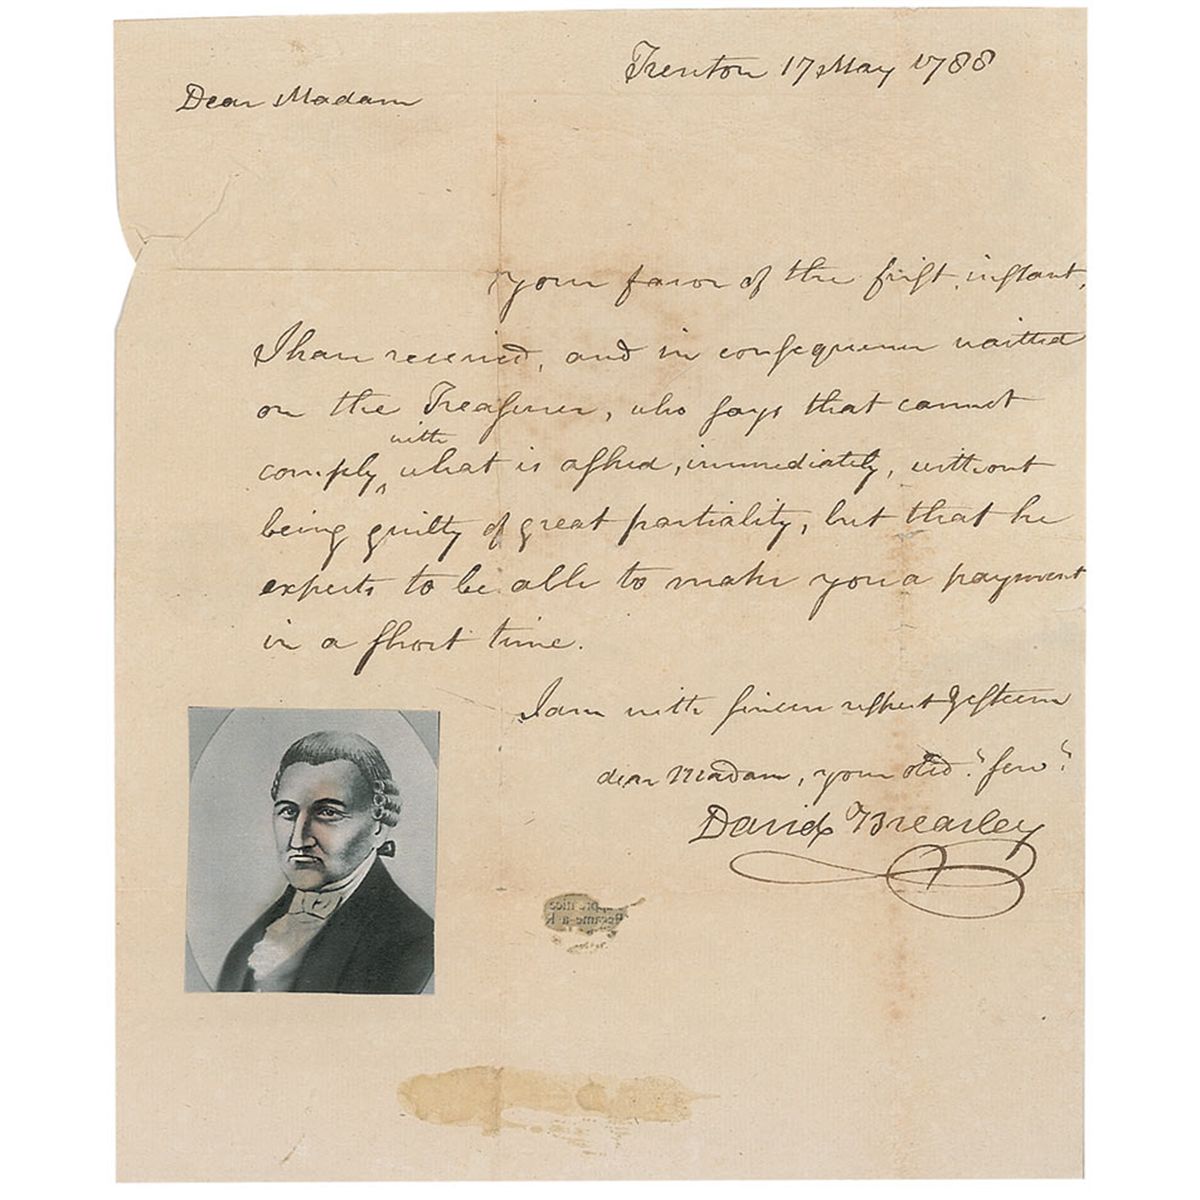 Trenton 17 May 1788
Dear Madam
your favor of the first instant,
I have received, and in consequence waited
on the Treasurer, who says that cannot
with
comply ‸ what is asked, immediately, without
being guilty of great partiality, but that he
expects to be able to make you a payment
in a short time.
I am with sincere respect & esteem
dear Madam, your obed.t serv.t
David Brearley
Became a